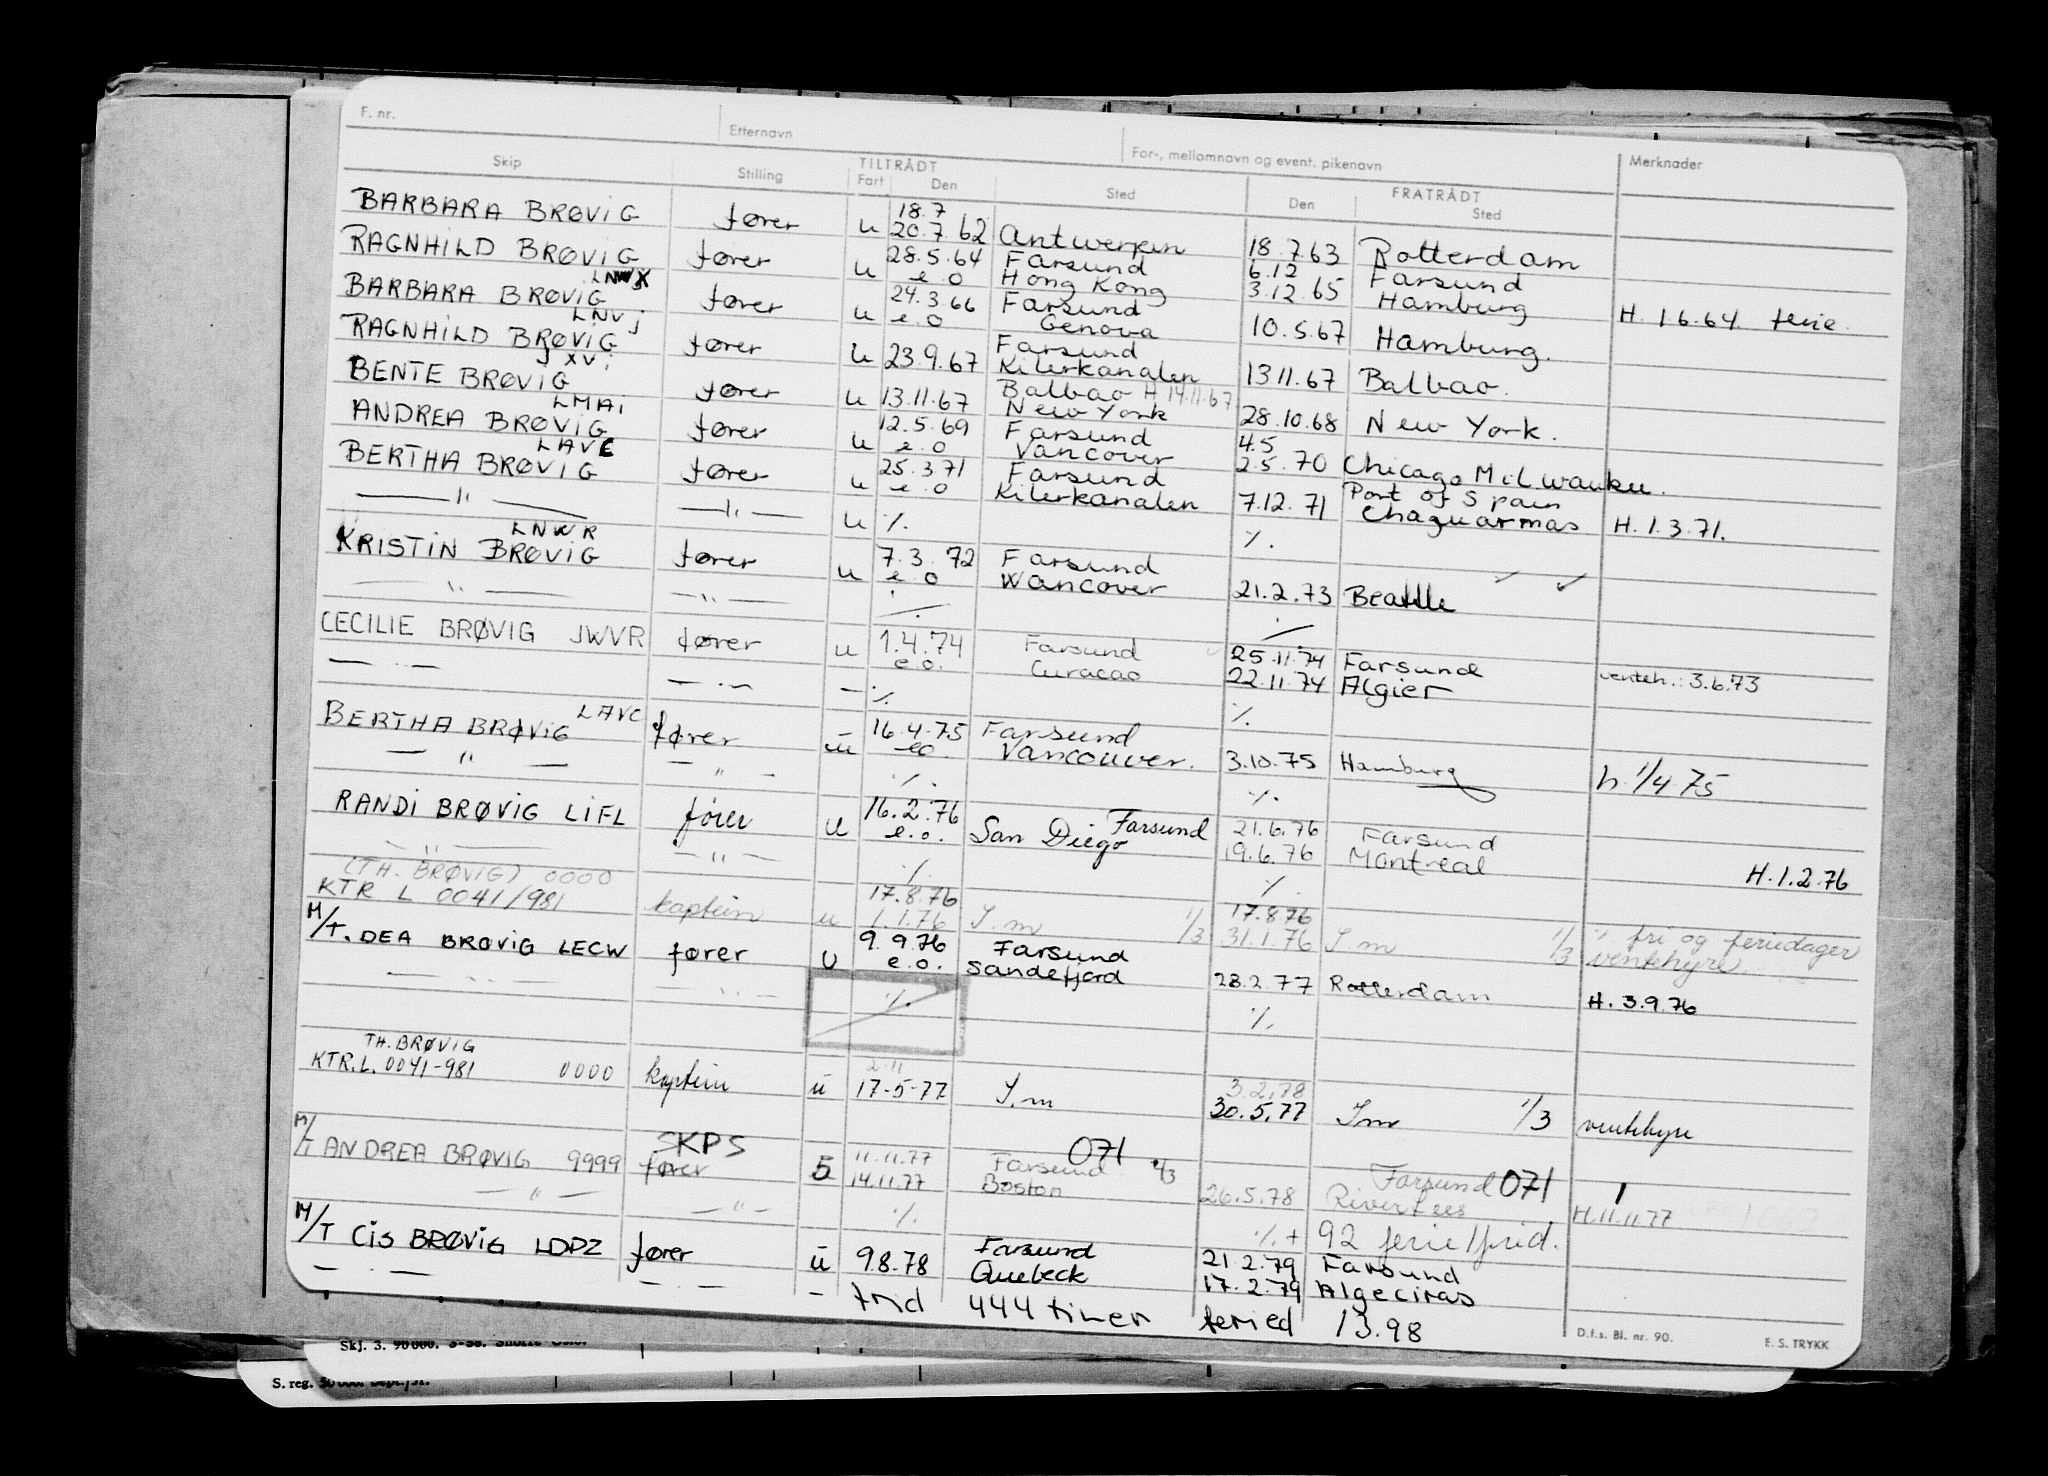 F. nr. Etternavn For-, mellomnavn og event. pikenavn Merknader
Skip Stilling TILTRÅDT FRATRÅDT
Fart Den Sted Den Sted
BARBARA BRØVIG fører u 18.7 20.7.62 Antwerpen 18.7.63 Rotterdam
RAGNHILD BRØVIG fører u 28.5.64 Farsund 6.12 Farsund
LNWX e.o Hong Kong 3.12.65 Hamburg H. 1 6.64 ferie.
BARBARA BRØVIG fører u 24.3.66 Farsund
LNVJ e.o Genova 10.5.67 Hamburg.
RAGNHILD BRØVIG fører u 23.9.67 Farsund
JXVI Kilerkanalen 13.11.67 Balbao.
BENTE BRØVIG fører u 13.11.67 Balbao H 14.11.67
LMAI New York 28.10.68 New York.
ANDREA BRØVIG fører u 12.5.69 Farsund 4.5
LAVC e.o Vancover 2.5.70 Chicago Milwaukee.
BERTHA BRØVIG fører u 25.3.71 Farsund Port of Spain
e.o Kilerkanalen 7.12.71 Chaguarmas H. 1.3.71.
— " — — " — u ٪. ٪.
LNWR
KRISTIN BRØVIG fører u 7.3.72 Farsund
e.o Wancover 21.2.73 Beattle
— " — — " —
CECILIE BRØVIG JWVR fører u 1.4.74 Farsund 25.11.74 Farsund
e.o. Curacao 22.11.74 Algier venteh.: 3.6.73
— . — — . — — ٪. ٪.
LAVC
BERTHA BRØVIG fører u 16.4.75 Farsund
eo. Vancouver. 3.10.75 Hamburg h. 1/4 75
— " — — " — ٪. ٪.
RANDI BRØVIG LIFL fører u 16.2.76 Farsund 21.6.76 Farsund
e.o. San Diego 19.6.76 Montreal H. 1.2.76
— " — — " — ٪. ٪.
(TH. BRØVIG) 0000 17.8.76 17.8.76
KTR L 0041/981 kaptein u 1.1.76 I.m 1/3 31.1.76 I.m 1/3 fri og feriedager
ventehyre.
M/T. DEA BRØVIG LECW fører U 9.9.76 Farsund
e.o. Sandefjord 28.2.77 Rotterdam H. 3.9.76
— " — — " — ٪. ٪.
TH. BRØVIG 2.11 3.2.78
KTR.L. 0041-981 0000 kaptein u 17-5-77 I.m 30.5.77 I.m 1/3 ventehyre
SKPS 071
M/T ANDREA BRØVIG 9999 fører 5 11.11.77 Farsund 1/3 Farsund 071 1
14.11.77 Boston 26.5.78 H.11.11.77
— " — — " — ٪. ٪. + 92 ferie/frid.
M/T CIS BRØVIG LDPZ fører u 9.8.78 Farsund 21.2.79 Farsund
Quebeck 17.2.79 Algeciras
— . — — . — — frid 444 timer feried 13.98
D.f.s. Bl. nr. 90. E. S. TRYKK
Skj. 3. 90 000.
S. reg.